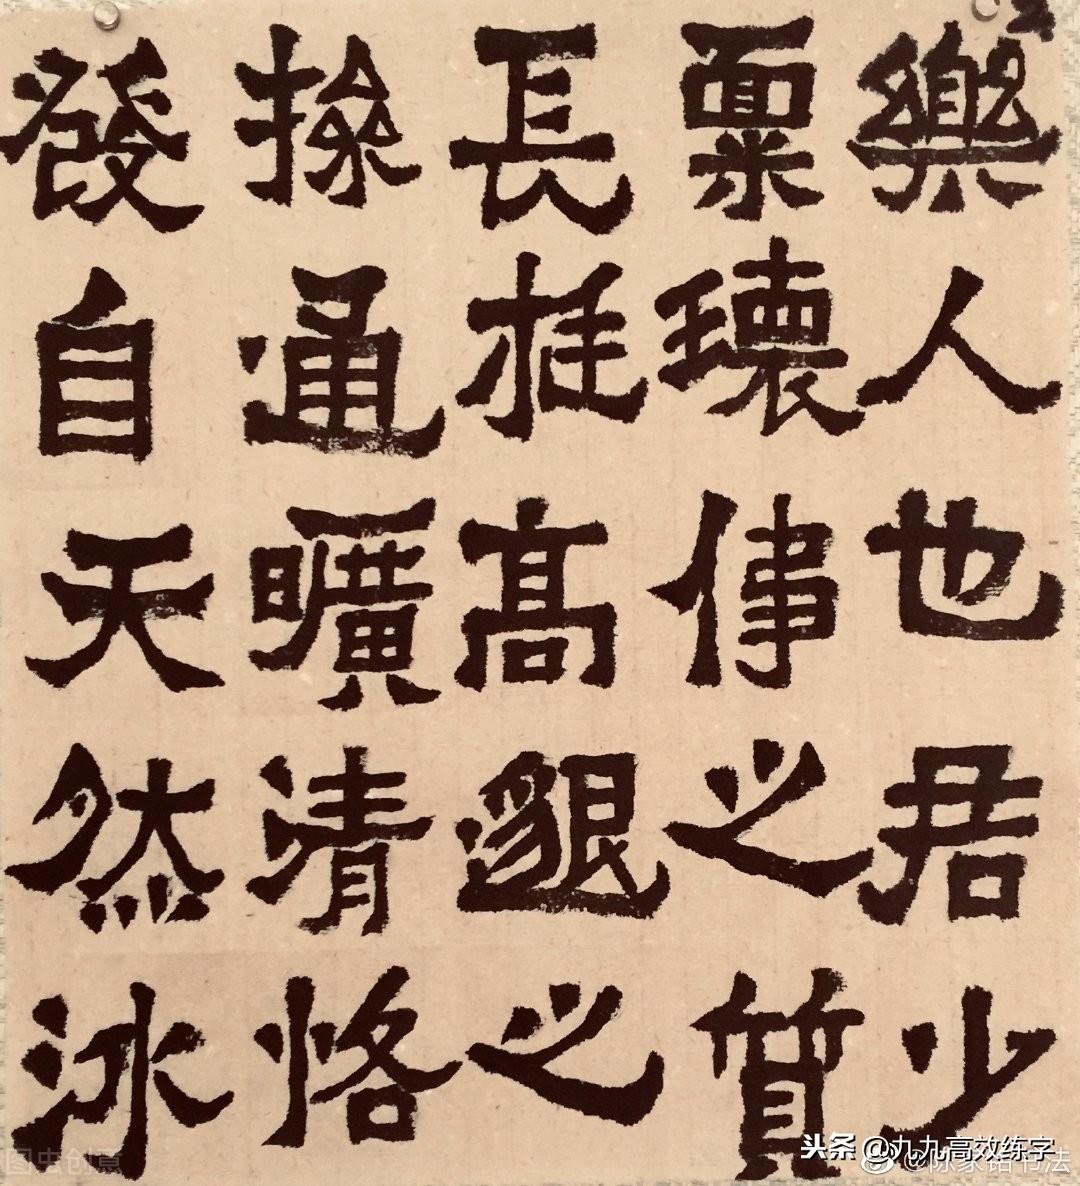 樂人也君少
禀瓌偉之質
長挺高邈之
操通曠清恪
發自天然冰
头条 @九九高效练字
@陈家铭书法
图虫创意